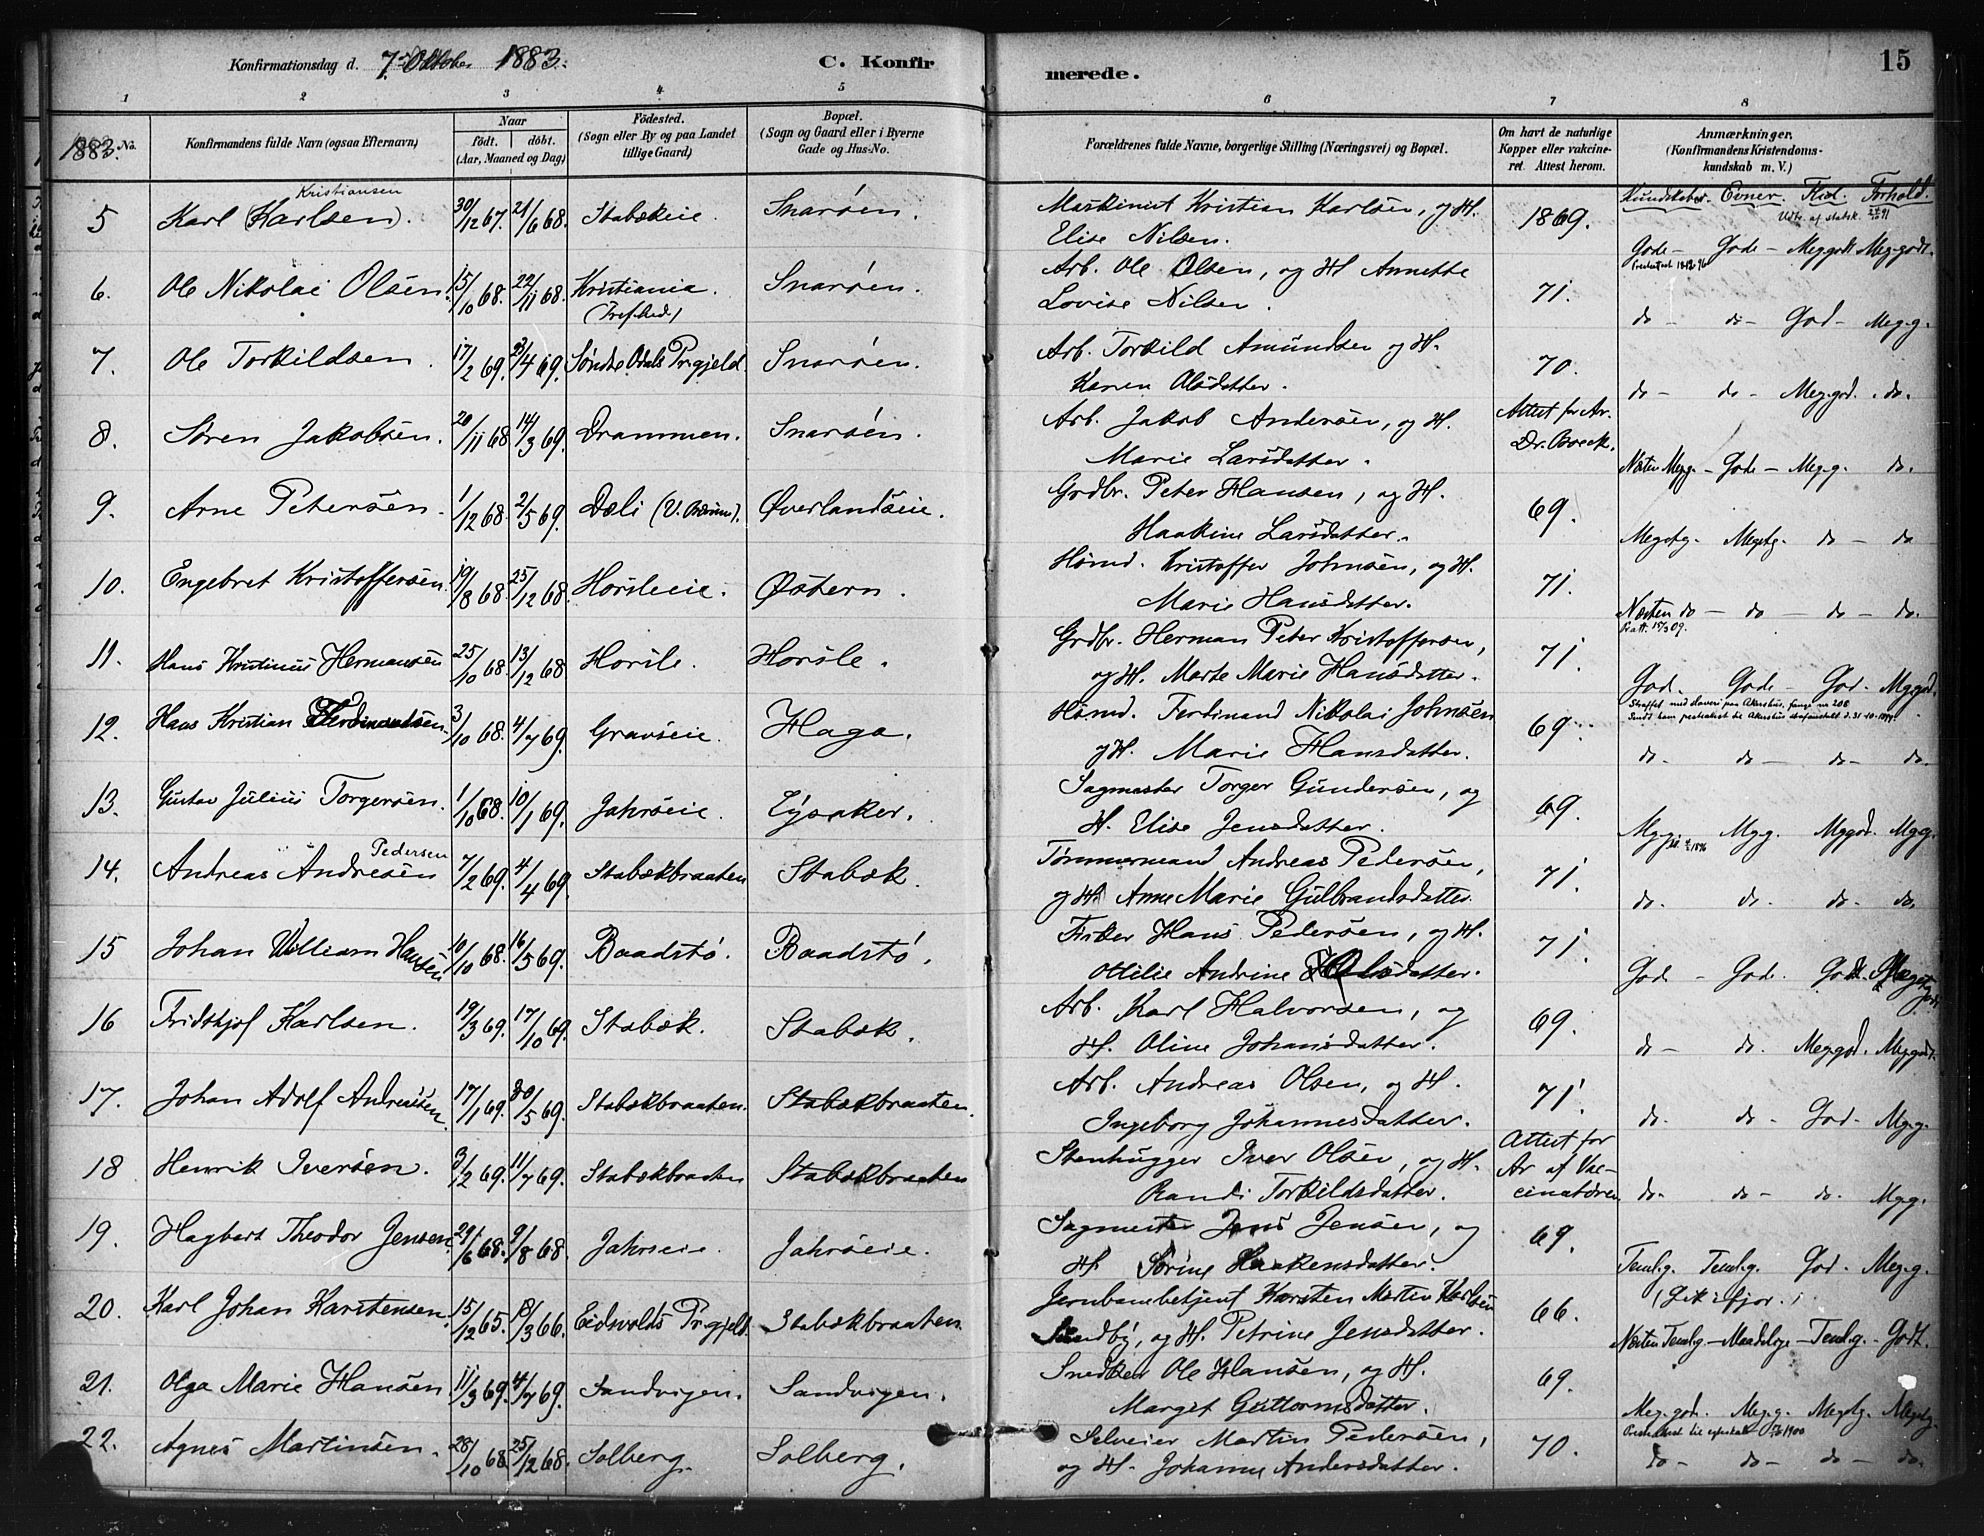 Konfirmationsdag d. 7de Oktober 1883.
C. Konfirmerede.
15
1 2 3 4 5 6 7 8
1883. No.
Konfirmandens fulde Navn (ogsaa Efternavn)
Naar
födt. döbt.
(Aar, Maaned og Dag)
Födested.
(Sogn eller By og paa Landet
tillige Gaard)
Bopæl.
(Sogn og Gaard eller i Byerne
Gade og Hus-No.
Forældrenes fulde Navne, borgerlige Stilling (Næringsvei) og Bopæl.
Om havt de naturlige
Kopper eller vakcine-
ret. Attest herom.
Anmærkninger.
(Konfirmandens Kristendoms-
kundskab m. V.)
Kundskaber. Evner. Flid. Forhold.
Kristiansen
5 Karl (Karlsen). 30/12 67. 21/6 68. Stabækeie. Snarøen. Maskinist Kristian Karlsen, og H. 1869.
Elise Nilsen. Gode - Gode - Meg godt Meg-godt.
6. Ole Nikolai Olsen. 15/10 68. 22/11 68. Kristiania. Snarøen. Arb. Ole Olsen, og H. Annette 71.
Lovise Nilsen. do - do - God - Meg.g.
7. Ole Torkildsen. 17/2 69. /4 69. Søndre Odals Prgjeld. Snarøen. Arb. Torkild Amundsen og H. 70.
Karen Olsdatter. do - do - Meg.god. do.
8. Søren Jakobsen. 20/11 68 14/3 69. Drammen. Snarøen. Arb. Jakob Andersen, og H. Attest for Ar.
Marie Larsdatter. Dr. Boeck. Næsten Meg.g. - Gode - Meg.g. do.
9. Arne Petersen. 1/12 68. 2/5 69. Dæli (V. Bærum). Øverlandseie. Grdbr. Peter Hansen, og H. 69.
Haakine Larsdatter. Megetg. Megetg. do - do
10. Engebret Kristoffersen. 19/8 68. 25/12 68. Horsleeie. Østern. Hsmd. Kristoffer Johnsen, og H. 71.
Marie Hansdatter. Næsten do - do - do - do.
11. Hans Kristinius Hermansen 25/10 68. 13/12 68. Horsle. Horsle. Grdbr. Herman Peter Kristoffersen, 71.
og H. Marte Marie Hansdatter. God. Gode - God. Meg god.
12. Hans Kristian Ferdinandsen. 3/10 68. 4/7 69. Gravseie. Haga. Hsmd. Ferdinand Nikolai Johnsen 69.
og H. Marie Hansdatter. do. do - do - do.
13. Gustav Julius Torgersen. 1/10 68. 10/1 69. Jahrseie. Lysaker. Sagmester Torger Gundersen, og 69.
H. Elise Jensdatter. Mg.g. Mg.g. Mg god. Mg.g.
Pedersen
14. Andreas Andresen 7/2 69. 4/4 69. Stabækbraaten Stabæk. Tømmermand Andreas Pedersen, 71.
og H. Anne Marie Gulbrandsdatter. do. do. do. do.
15 Johan William Hansen 10/10 68. 16/5 69. Baadstø. Baadstø. Fisker Hans Pedersen, og H. 71.
Ottilie Andrine Olsdatter. God - God.
16 Fridthjof Karlsen. 19/3 69. 17/10 69. Stabæk. Stabæk. Arb. Karl Halvorsen, og 69.
H. Oline Johansdatter. do - do. Meg.god. Meg.godt.
17. Johan Adolf Andreassen. 17/1 69. 30/5 69. Stabækbraaten. Stabækbraaten. Arb. Andreas Olsen, og H. 71.
Ingeborg Johannesdatter. do. do - God. Meg.g.
18 Henrik Iversen. 3/2 69. 11/7 69. Stabækbraaten Stabækbraaten Stenhugger Iver Olsen, og H. Attest for
Randi Torkildsdatter. Ar af Vac-
cinatøren do. do - do. Mg.g.
19. Hagbart Theodor Jensen 29/6 68. 9/8 68. Jahrseie. Jahrseie. Sagmester Jens Jensen, og 69.
H. Sørine Haakensdatter. Teml.g. Teml.g. God. Meg.g.
20. Karl Johan Karstensen. 15/12 65. 18/3 66. Eidsvolds Prgjeld. Stabækbraaten. Jernbanebetjent Karsten Martin Karlsen 66.
(Gik ifjor.)
Sundby, og H. Petrine Jensdatter. Næsten Teml.g - Maadelige - Teml.g - Godt.
21. Olga Marie Hansen 11/3 69. 4/7 69. Sandvigen. Sandvigen. Snedker Ole Hansen, og H. 69.
Margit Guttormsdatter. Meg. god. Meg.g. Megetg. Megetg.
22. Agnes Martinsen. 28/10 68. 25/12 68. Solberg. Solberg. Selveier Martin Pedersen, 70.
og H. Johanne Andersdatter. do - do - do - do.